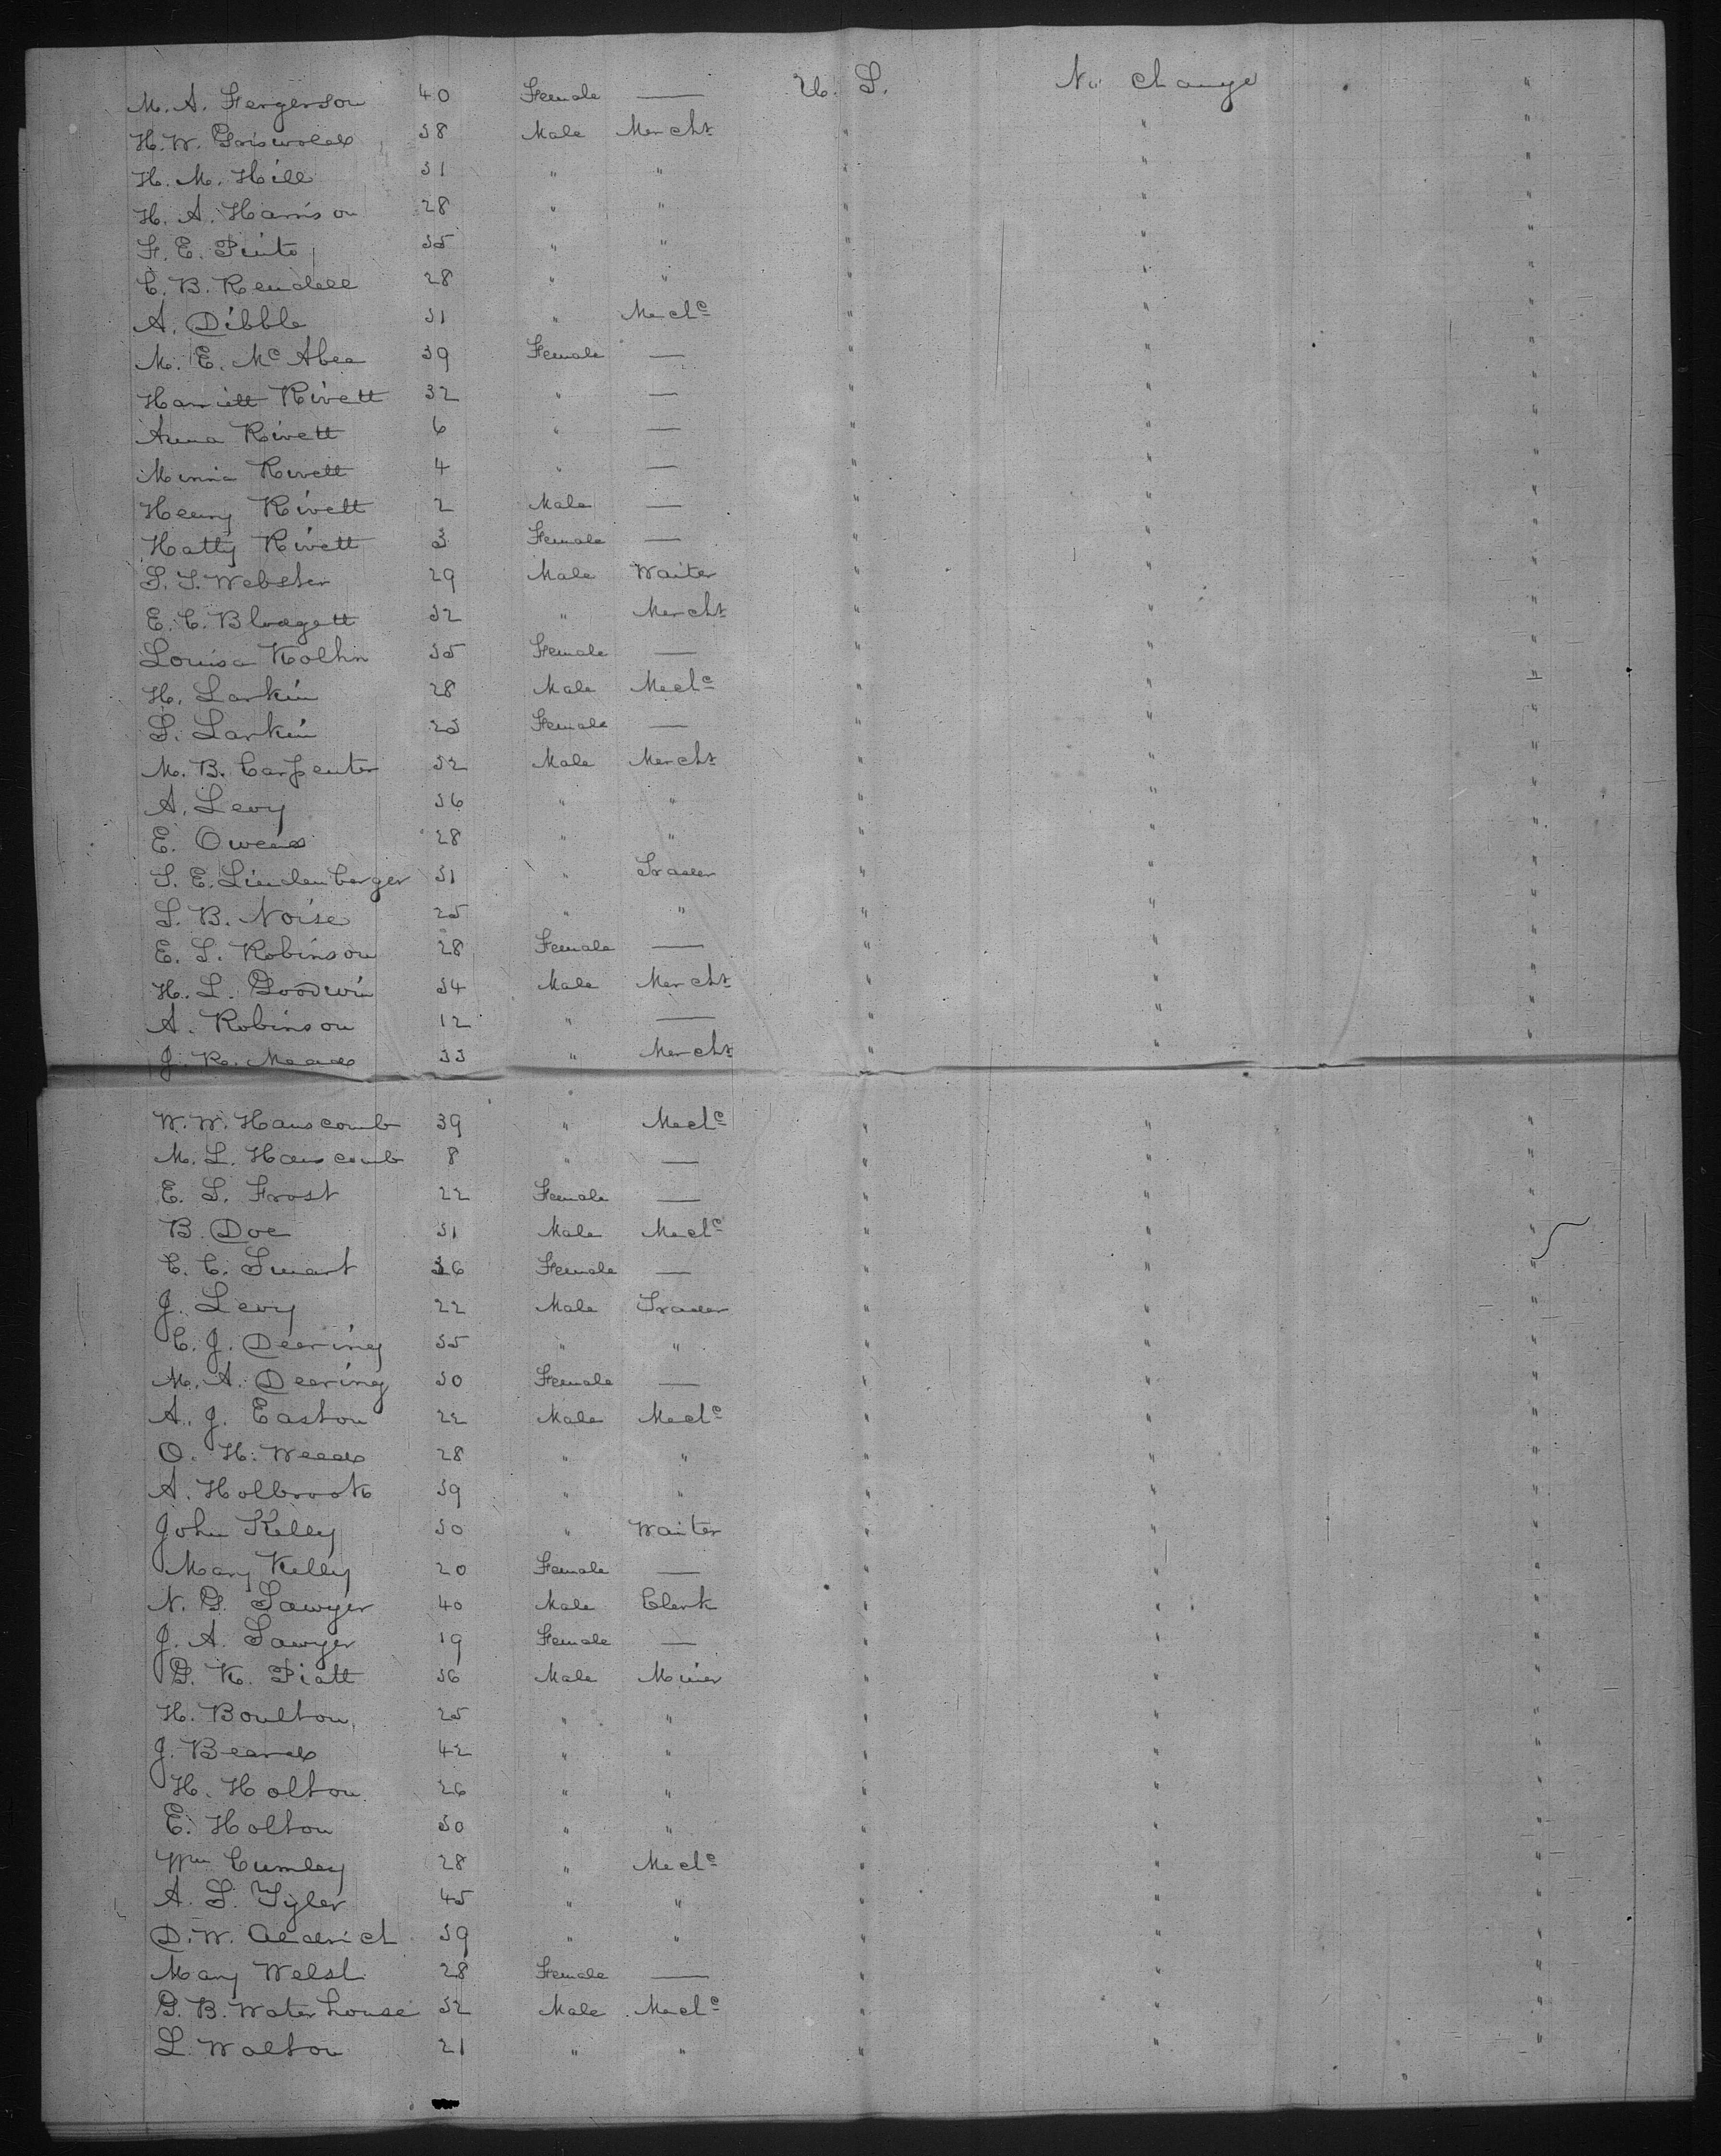 M. A. Fergerson 40 Female — U. S. No change "
H. W. Griswold 38 Male Mercht " " "
H. M. Hill 31 " " " " "
H. A. Harrison 28 " " " " "
F. E. Pinto 35 " " " " "
C. B. Rendell 28 " " " " "
A. Dibble 31 " Mechc " " "
M. E. Mc Abee 39 Female — " " "
Harriett Rivett 32 " — " " "
Anna Rivett 6 " — " " "
Minnie Rivett 4 " — " " "
Henry Rivett 2 Male — " " "
Hatty Rivett 3 Female — " " "
S. S. Webster 29 Male Waiter " " "
E. C. Blodgett 32 " Mercht " " "
Louisa 35 Female — " " "
H. Larkin 28 Male Mechc " " "
S. Larkin 23 Female — " " "
M. B. Carpenter 32 Male Mercht " " "
A. Levy 36 " " " " "
E. Owens 28 " " " " "
S. E. Lindenberger 31 " Trader " " "
S. B. Noise 25 " " " " "
E. S. Robinson 28 Female — " " "
H. L. Goodwin 34 Male Mercht " " "
A. Robinson 12 " — " " "
J. R. Mead 33 " Mercht " " "
W. W. Hanscomb 39 " Mechc " " "
M. L. Hanscomb 8 " — " " "
E. S. Frost 22 Female — " " "
B. Doe 31 Male Mechc " " "
C. C. Smart 36 Female — " " "
J. Levy 22 Male Trader " " "
C. J. Deering 35 " " " " "
M. A. Deering 30 Female — " " "
A. J. Easton 22 Male Mechc " " "
O. H. Weed 28 " " " " "
A. Holbrook 39 " " " " "
John Kelly 30 " Waiter " " "
Mary Kelly 20 Female — " " "
N. G. Sawyer 40 Male Clerk " " "
J. A. Sawyer 19 Female — " " "
G. K. Piatt 36 Male Miner " " "
H. Boulton 25 " " " " "
J. Beard 42 " " " " "
H. Holton 26 " " " " "
E. Holton 30 " " " " "
Wm Cumley 28 " Mechc " " "
A. S. Tyler 45 " " " " "
D. W. Aldrich 39 " " " " "
Mary Welsh 28 Female — " " "
G. B. Waterhouse 32 Male Mechc " " "
L. Walton 21 " " " " "